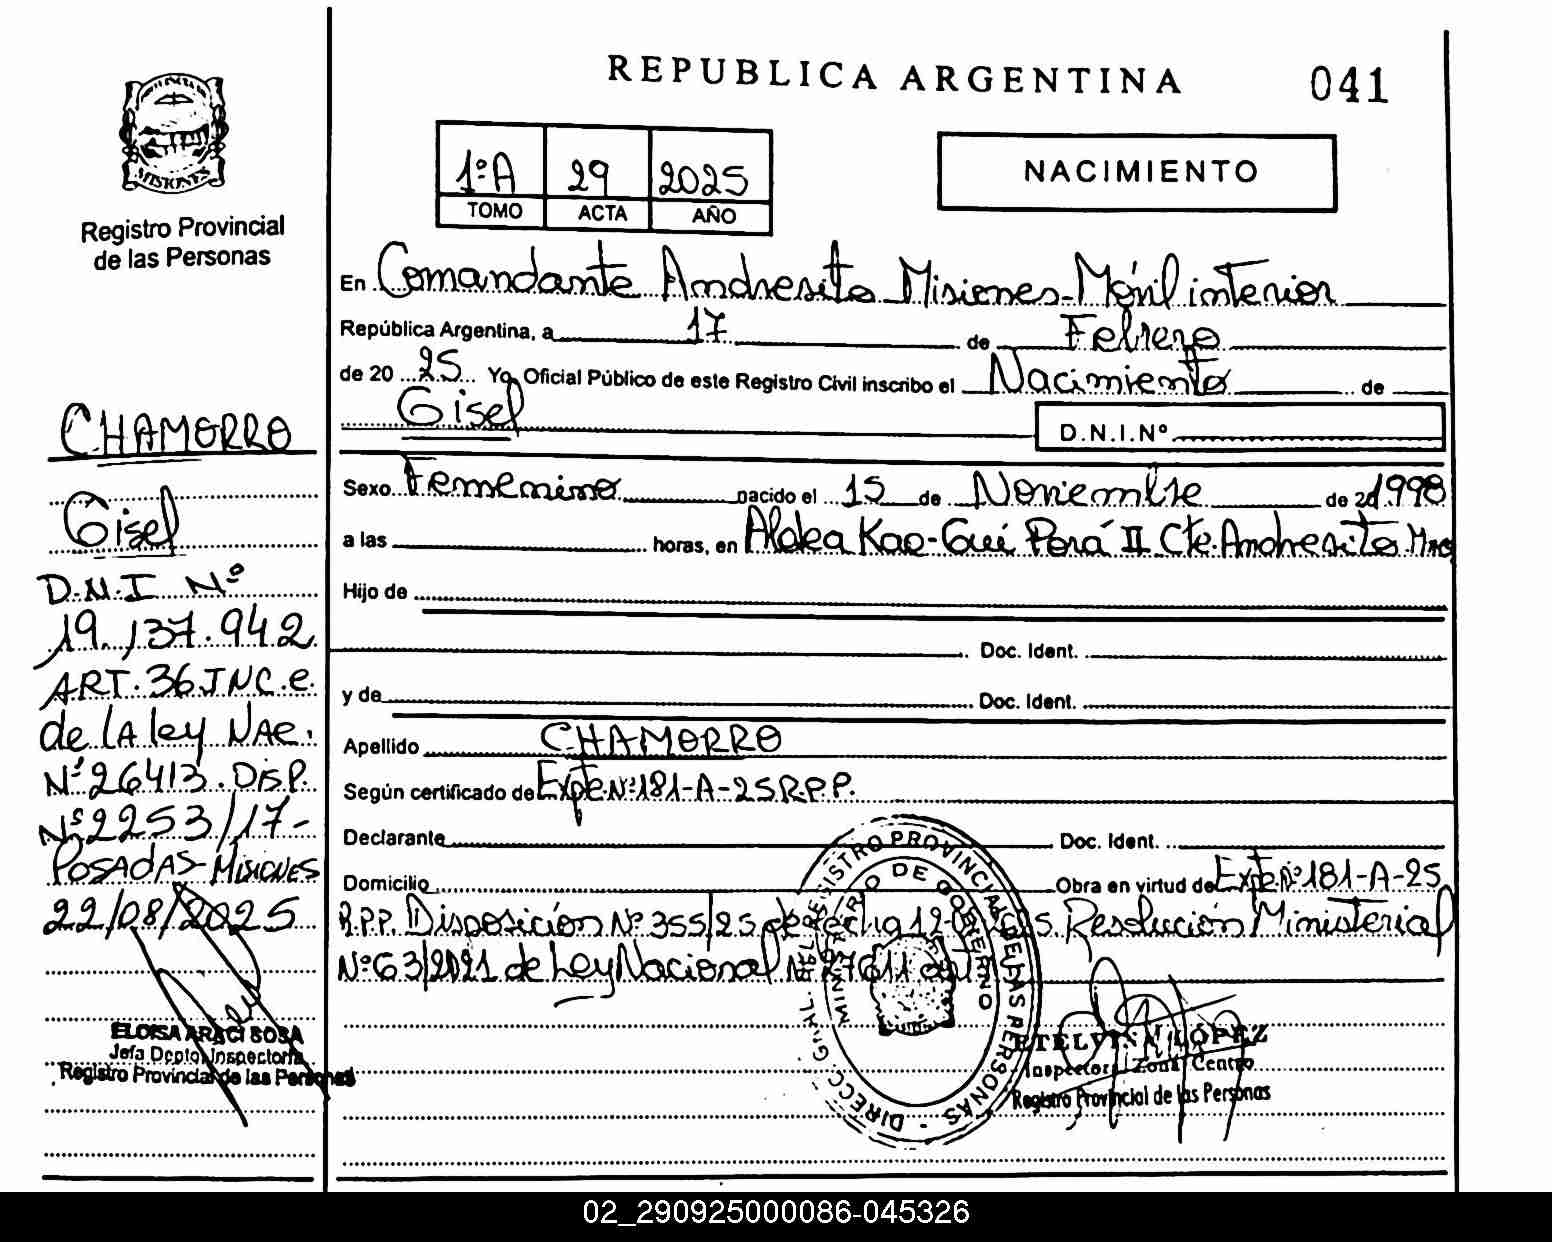 REPUBLICA ARGENTINA
041
MISIONES
Registro Provincial
de las Personas
1ºA 29 2025
TOMO ACTA AÑO
NACIMIENTO
En Comandante Andresito Misiones-Móvil interior
República Argentina, a 17 de Febrero
de 20 25 Yo, Oficial Público de este Registro Civil inscribo el Nacimiento de
Gisel
D.N.I.Nº
Sexo Femenino nacido el 15 de Noviembre de 20 1998
a las horas, en Aldea Kao-Gui Porá II Cte. Andresito Mnes
Hijo de
Doc. Ident.
y de Doc. Ident.
Apellido CHAMORRO
Según certificado de Expte.Nº181-A-25R.P.P.
Declarante Doc. Ident.
Domicilio Obra en virtud de Expte Nº181-A-25
R.P.P. Disposición Nº 355/25 de fecha 12 Resolución Ministerial
Nº63/2021 de Ley Nacional Nº 27611
CHAMORRO
Gisel
D.N.I Nº
19.137.942
ART.36 INC.e.
de lA ley NAC.
Nº26413.DisP.
Nº2253/17-
POSADAS-MISIONES
22/08/2025
ELOISA ARACI SOSA
Jefa Depto. Inspectoría
Registro Provincial de las Personas
DIRECC. GRAL. DEL REGISTRO PROVINCIAL DE LAS PERSONAS
MINISTERIO DE GOBIERNO
ETELVINA LÓPEZ
Inspectora Zona Centro
Registro Provincial de las Personas
02_290925000086-045326